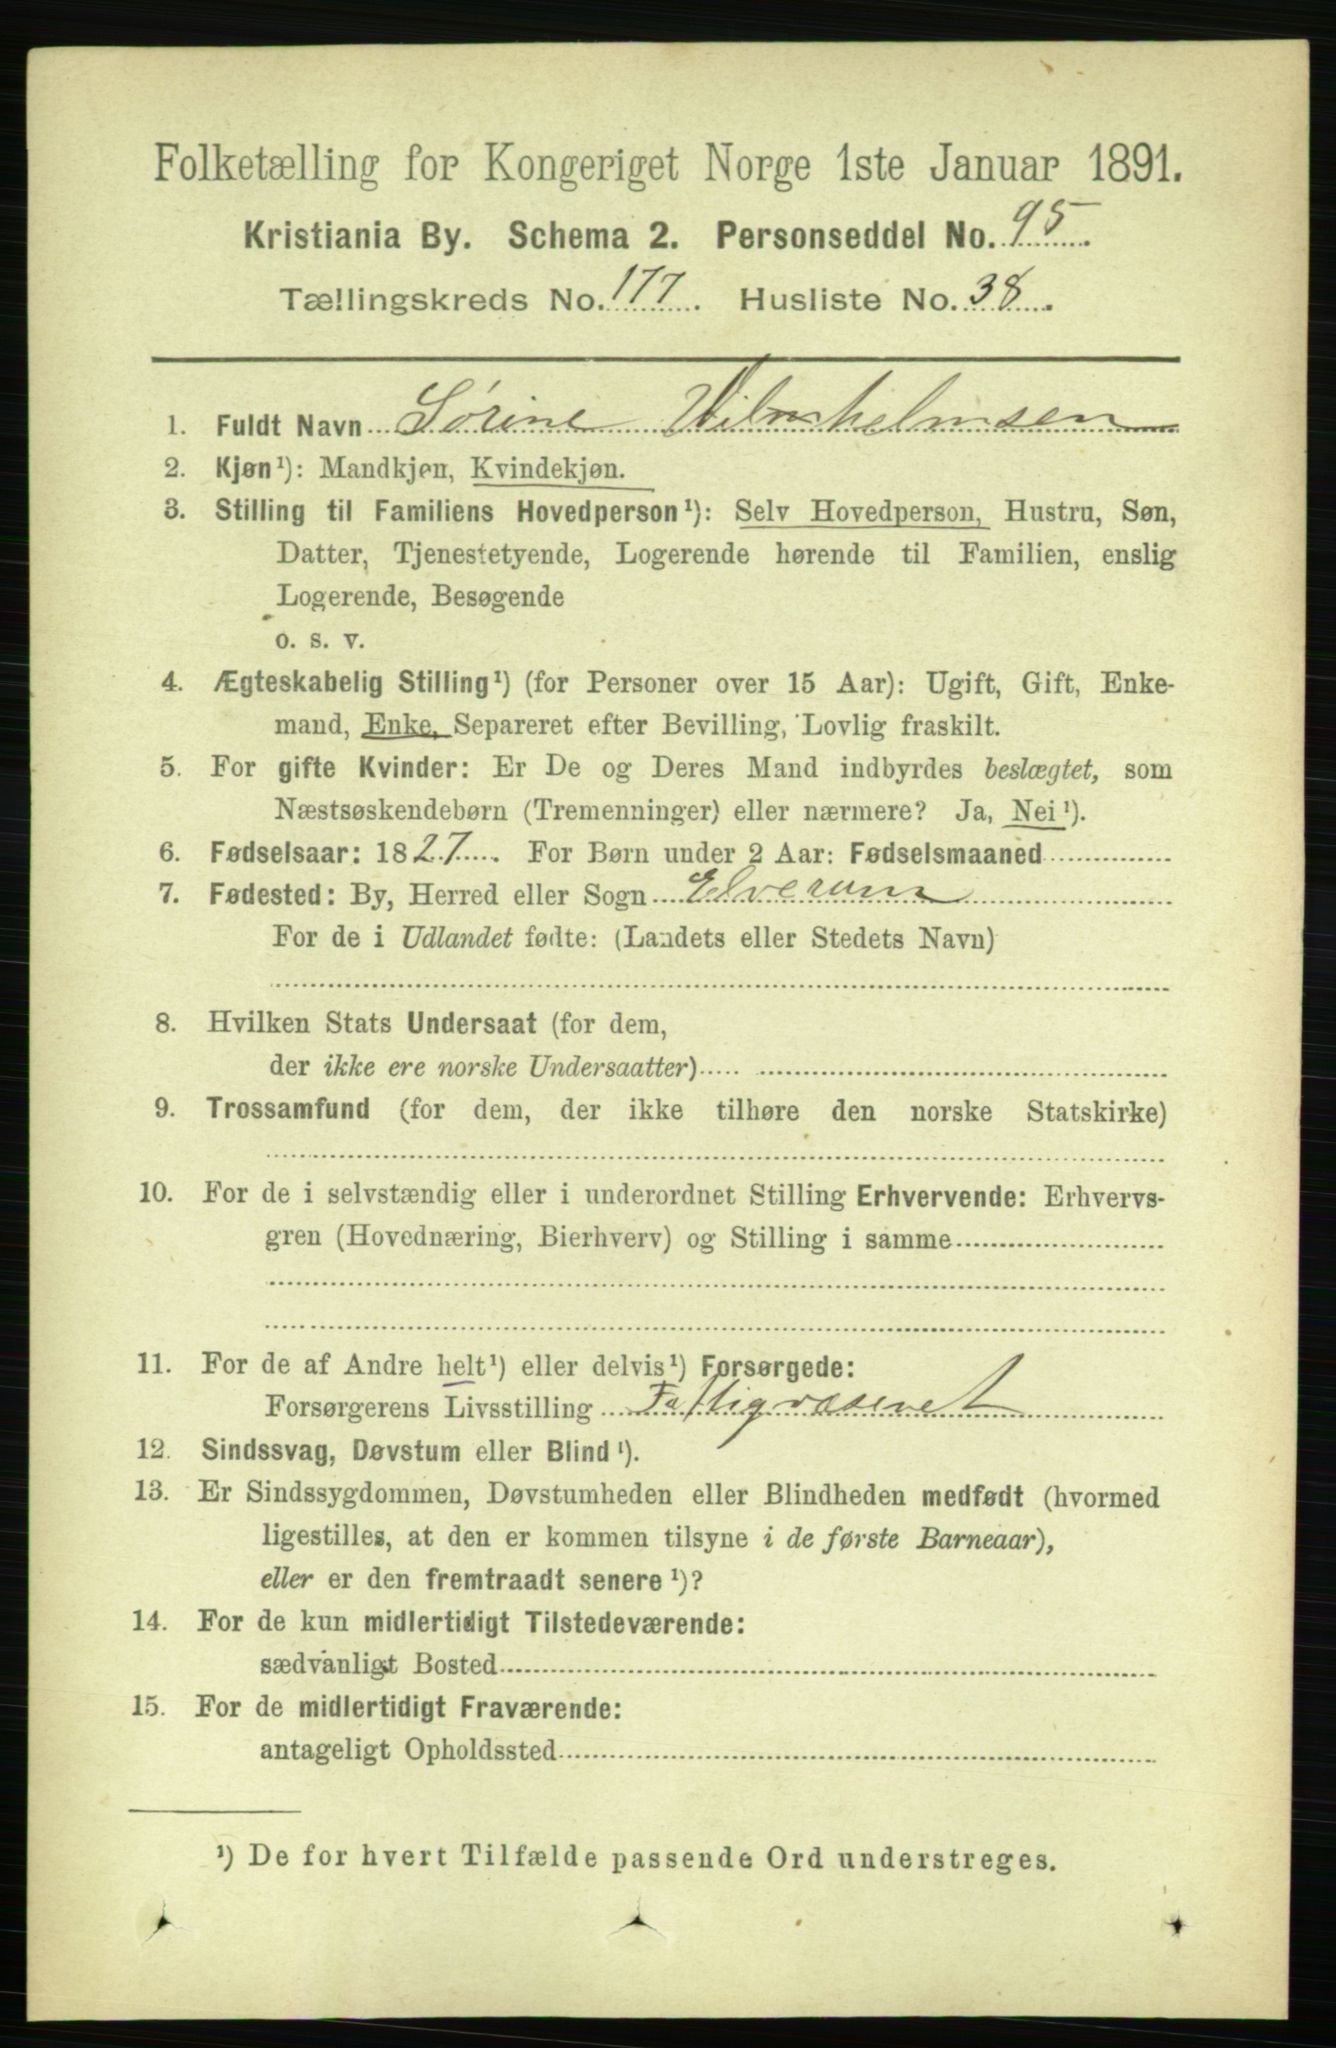 Folketælling for Kongeriget Norge 1ste Januar 1891.
Kristiania By. Schema 2. Personseddel No. 95.
Tællingskreds No. 177. Husliste No. 38.
1. Fuldt Navn Sørine Wilhelmsen
2. Kjøn¹): Mandkjøn, Kvindekjøn.
3. Stilling til Familiens Hovedperson¹): Selv Hovedperson, Hustru, Søn,
Datter, Tjenestetyende, Logerende hørende til Familien, enslig
Logerende, Besøgende
o. s. v.
4. Ægteskabelig Stilling¹) (for Personer over 15 Aar): Ugift, Gift, Enke-
mand, Enke, Separeret efter Bevilling, Lovlig fraskilt.
5. For gifte Kvinder: Er De og Deres Mand indbyrdes beslægtet, som
Næstsøskendebørn (Tremenninger) eller nærmere? Ja, Nei¹).
6. Fødselsaar: 1827. For Børn under 2 Aar: Fødselsmaaned
7. Fødested: By, Herred eller Sogn Elverum
For de i Udlandet fødte: (Landets eller Stedets Navn)
8. Hvilken Stats Undersaat (for dem,
der ikke ere norske Undersaatter)
9. Trossamfund (for dem, der ikke tilhøre den norske Statskirke)
10. For de i selvstændig eller i underordnet Stilling Erhvervende: Erhvervs-
gren (Hovednæring, Bierhverv) og Stilling i samme
11. For de af Andre helt¹) eller delvis¹) Forsørgede:
Forsørgerens Livsstilling Fattigvæsenet
12. Sindssvag, Døvstum eller Blind¹).
13. Er Sindssygdommen, Døvstumheden eller Blindheden medfødt (hvormed
ligestilles, at den er kommen tilsyne i de første Barneaar),
eller er den fremtraadt senere¹)?
14. For de kun midlertidigt Tilstedeværende:
sædvanligt Bosted
15. For de midlertidigt Fraværende:
antageligt Opholdssted
¹) De for hvert Tilfælde passende Ord understreges.